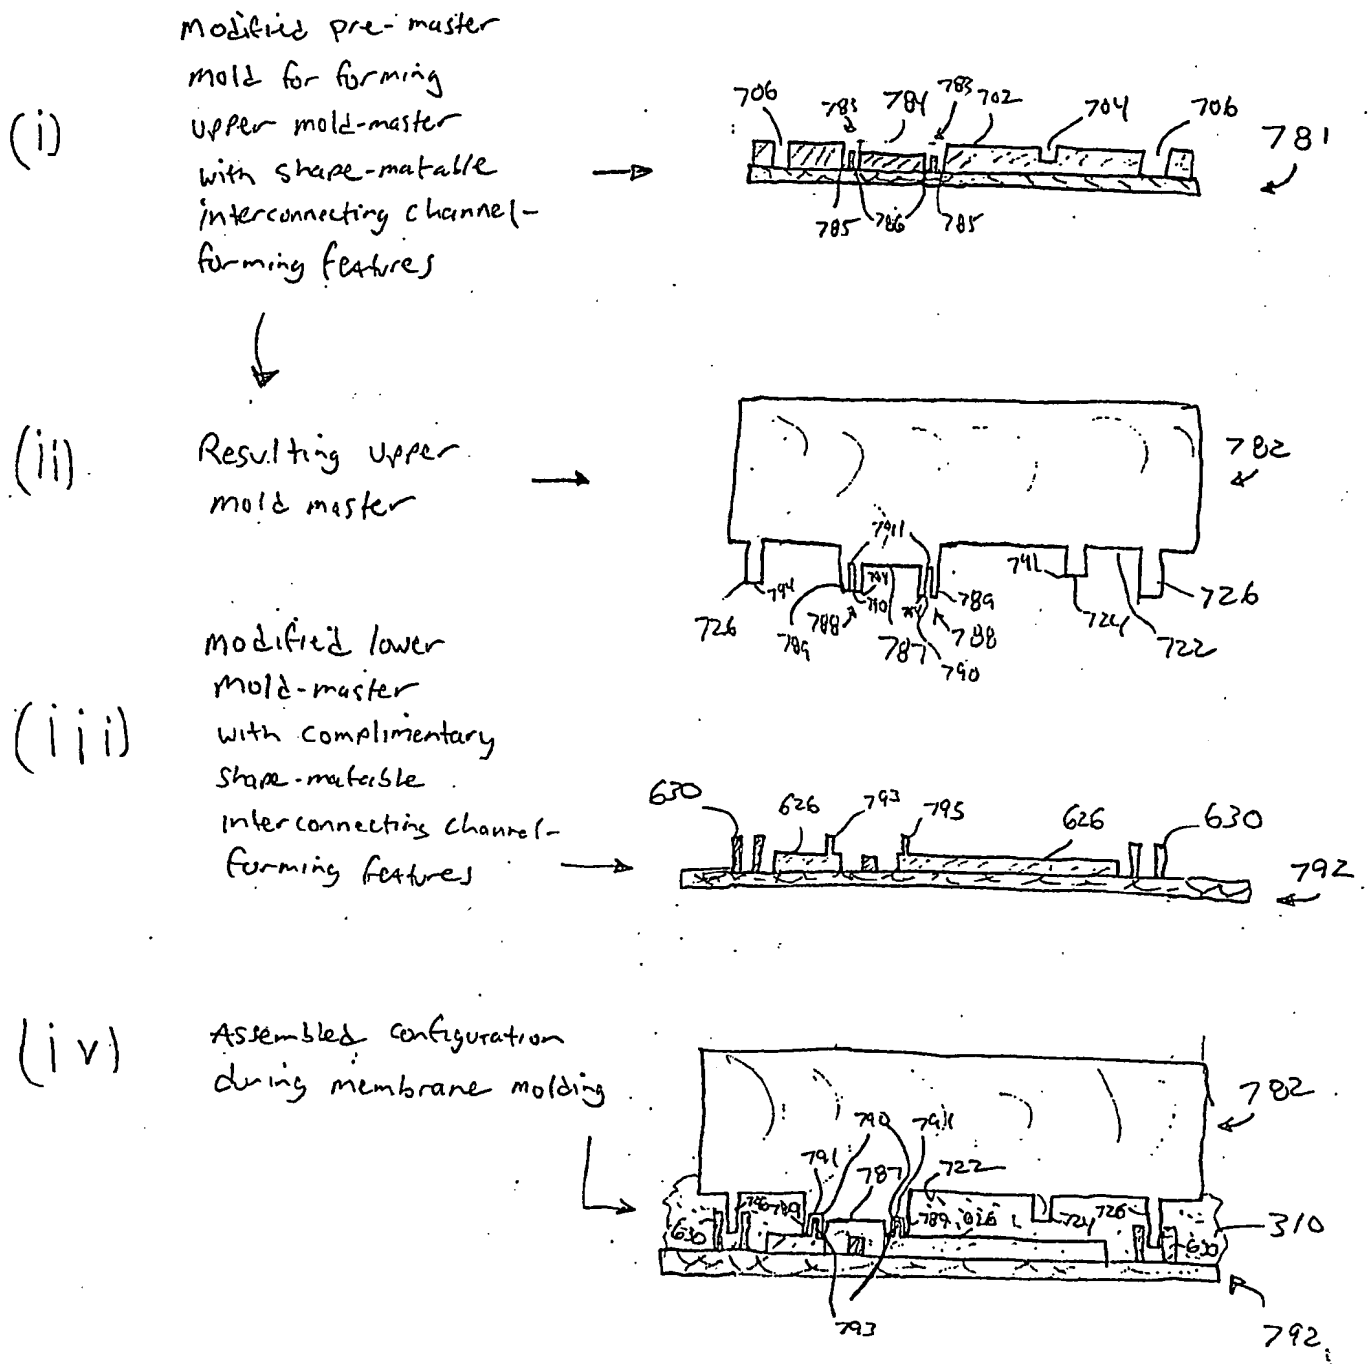 Modified pre-master
mold for forming
(i) upper mold-master
with shape-matable
interconnecting channel-
forming features
706 783 784 783 702 704 706 781
785 786 785
(ii) Resulting upper
mold master
782
791
794 790 794 741
726 789 788 787 790 788 789 724 722 726
modified lower
mold-master
(iii) with complimentary
shape-matable
interconnecting channel-
forming features
630 626 793 795 626 630
792
(iv) Assembled configuration
during membrane molding
782
791 790 787 791 722
630 726 789 789 626 724 726 630 310
793
792